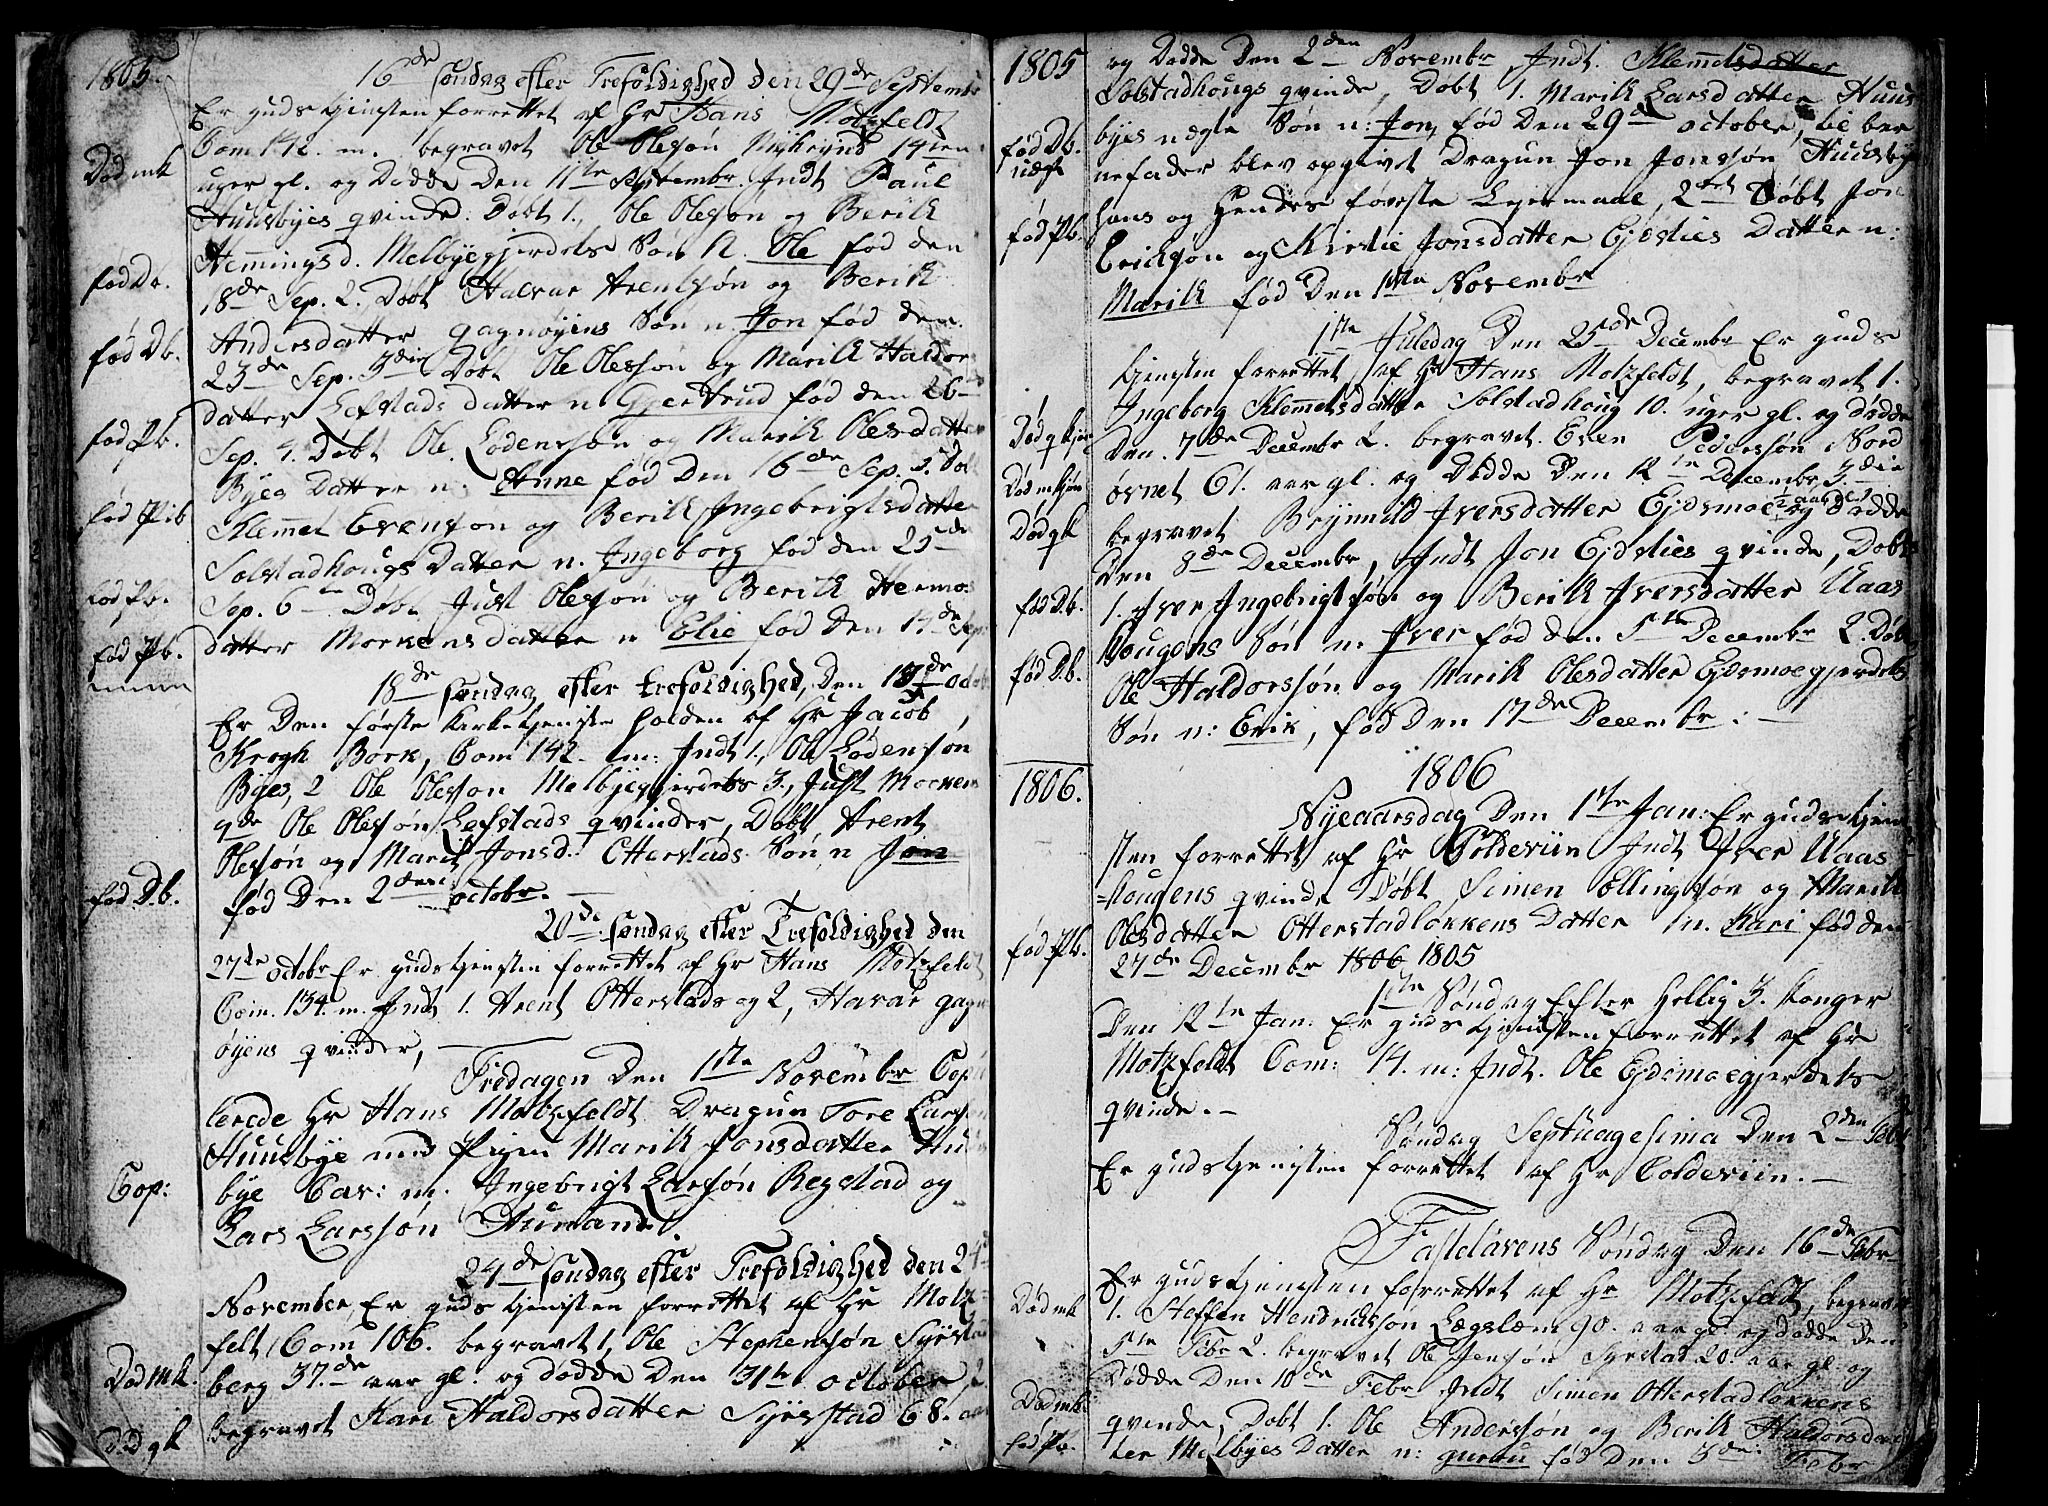 1805.
16de søndag efter Trefoldighed den 29de Septembr
Er gudstjensten forrettet af Hr Hans Motzfeldt
Com 142. m. begravet Ole Olesøn 14ten
Død mk
uger gl. og Døde Den 11te Septembr. Indt Paul
Huusbyes qvinde. Døbt 1., Ole Olesøn og Berit
Hemmingsd. Melbyegjerdets Søn N. Ole fød den
fød Db.
18de Sep. 2. Døbt Halvar Arentsøn og Berit
Andersdatter gagnøyens Søn n. Jon fød den
fød Db.
23de Sep. 3die Døbt Ole Olessøn og Marit Haldors
datter Lefstads datter n. Gjertrud fød den 26
fød Pb.
Sep. 4. Døbt Ole Lodenssøn og Marit Olesdatter
Byes Datter n. Anne fød Den 16de Sep. 5. Døbt
fød Pib
Klemmet Evensøn og Berit Ingebrigtsdatter
Solstadhougs Datter n. Ingeborg fød den 25de
fød Pb.
Sep. 6te Døbt Just Olessøn og Berit Hermos
datter Morkens datter n Elie fød Den 15de Sep.
fød Pb.
18de søndag efter trefoldighed, Den 13de Octob
Er Den første Kirketjeniste holden af Hr Jacob,
Krogh Bork, Com 142. m: Indt 1., Ole Lodensøn
Byes, 2 Ole Olesson Melbyegjerdets 3., Just Morkens
4de Ole Olesøn Lefstads qvinder, Døbt Arent
Olesøn og Marit Jonsd. Otterstads Søn n Jon
fød Db.
fød Den 2den octobr. —
20de søndag efter Trefoldighed den
27de octobr Er gudstjensten forrettet af Hr Hans Motzfeldt
Com. 134. m. Indt 1. Arent Otterstads og 2, Havar gagn
øyens qvinder, —
Fredagen Den 1ste Novembr Copu
lerede Hr Hans Motzfeldt Dragun Tore Larsen
Huusbye med Pigen Marit Jonsdatter Huus
bye Cav: m. Ingebrigt Larsøn Regstad og
Cop:
Lars Larsøn Aunand.
24de søndag efter Trefoldighed den 24
November, Er gudstjenisten forrettet af Hr Motz
felt Com 106. begravet 1, Ole Stephensøn Syrstad
Død mk.
berg 37.de aar gl. og døde Den 31te october, 2
begravet Kari Haldorsdatter Syrstad 68. aar
Død qk
1805
og Døde Den 2den Novembr Indt. Klemmetsdatter
Solstadhougs qvinde, Døbt 1. Marit Larsdatter Huus
fød Db.
uægt
byes uægte Søn n: Jon, fød Den 29de october, til bar
nefader blev opgivet Dragun Jon Jonsøn Huusbye
hans og hendes første Lejermaal, 2det Døbt Jon
fød Pb.
Ericksøn og Kirstie Jonsdatter Ejdslies Datter n:
Marit fød Den 1ste Novembr
1ste Juledag Den 25de Decembr Er guds
tjensten forrettet af Hr Hans Motzfeldt, begravet 1.
Ingeborg Klemmetsdatter Solstadhoug 10. uger gl. og døde
Død qkjøn
Den. 7de Decembr 2. begravet. Even Pedersøn Nord
Død mkjøn
øvnet 61. aar gl. og Døde Den 12te Decembr 3.die
begravet Brynnild Iversdatter Ejdsmoe ½ aar gl og Døde
Død qk
Den 8de Decembr, Indt Jon Ejdslies qvinde, Døbt
1. Iver Ingebrigtsøn og Berit Iversdatter Uaas
fød Db.
hougens Søn n. Iver fød den 5te Decembr 2. Døbt
fød Db.
Ole Haldorssøn og Marit Olesdatter Ejdsmoegjerdets
Søn n: Erik, fød Den 17de Decembr: —
1806
1806.
Nyeaarsdag Den 1ste Jan: Er gudstjeni
sten forrettet af Hr Coldeviin Indt Iver Uaas
=hougens qvinde Døbt Simen Ellingsøn og Marit
Olesdatter Otterstadløkkens Datter n. Kari fød den
fød Pb.
27de Decembr 1806 1805
1ste Søndag Efter Hellig 3. Konger
Den 12te Jan: Er gudstjenisten forrettet af Hr
Motzfeldt Com: 14. m: Indt. Ole Ejdsmoegjerdets
qvinde. —
Søndag Septuagesima Den 2den Febr
Er gudstjenisten forrettet af Hr Coldeviin. —
Fastelavens Søndag Den 16de Febr
Er gudstjensten forrettet af Hr Motzfeldt, begravet
Død mk
1. Steffen Hendricksøn Lægslæm 90. aar gl. og døde Den
5te Febr 2. begravet Ole Jensøn Syrstad 20. aar gl. og
Døde Den 10de Febr Indt Simen Otterstadløkkens
Død mk.
qvinde, Døbt 1. Ole Andersøn og Berit Haldorsdat
fød Pb.
ter Melbyes Datter n: guruu fød Den 3de Febr